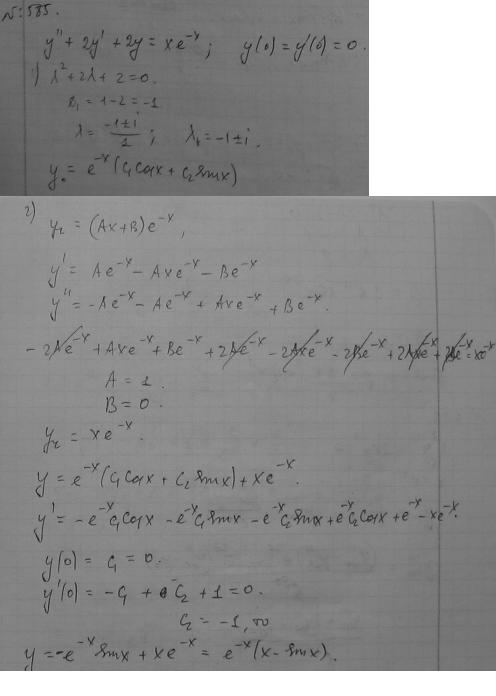 №: 585.
y'' + 2y' + 2y = xe^{-x}; y(0) = y'(0) = 0.
1) λ² + 2λ + 2 = 0.
D₁ = 1 - 2 = -1
λ = \frac{-1±i}{1}; λ₁ = -1±i.
y₀ = e^{-x}(C₁cosx + C₂sinx)
2) y_r = (Ax+B)e^{-x},
y' = Ae^{-x} - Axe^{-x} - Be^{-x}
y'' = -Ae^{-x} - Ae^{-x} + Axe^{-x} + Be^{-x}.
- 2Ae^{-x} + Axe^{-x} + Be^{-x} + 2Ae^{-x} - 2Axe^{-x} - 2Be^{-x} + 2Axe^{-x} + 2Be^{-x} = xe^{-x}
A = 1.
B = 0.
y_r = xe^{-x}.
y = e^{-x}(C₁cosx + C₂sinx) + xe^{-x}.
y' = -e^{-x}C₁cosx - e^{-x}C₁sinx - e^{-x}C₂sinx + e^{-x}C₂cosx + e^{-x} - xe^{-x}.
y(0) = C₁ = 0.
y'(0) = -C₁ + C₂ + 1 = 0.
C₂ = -1,
y = -e^{-x}sinx + xe^{-x} = e^{-x}(x - sinx).